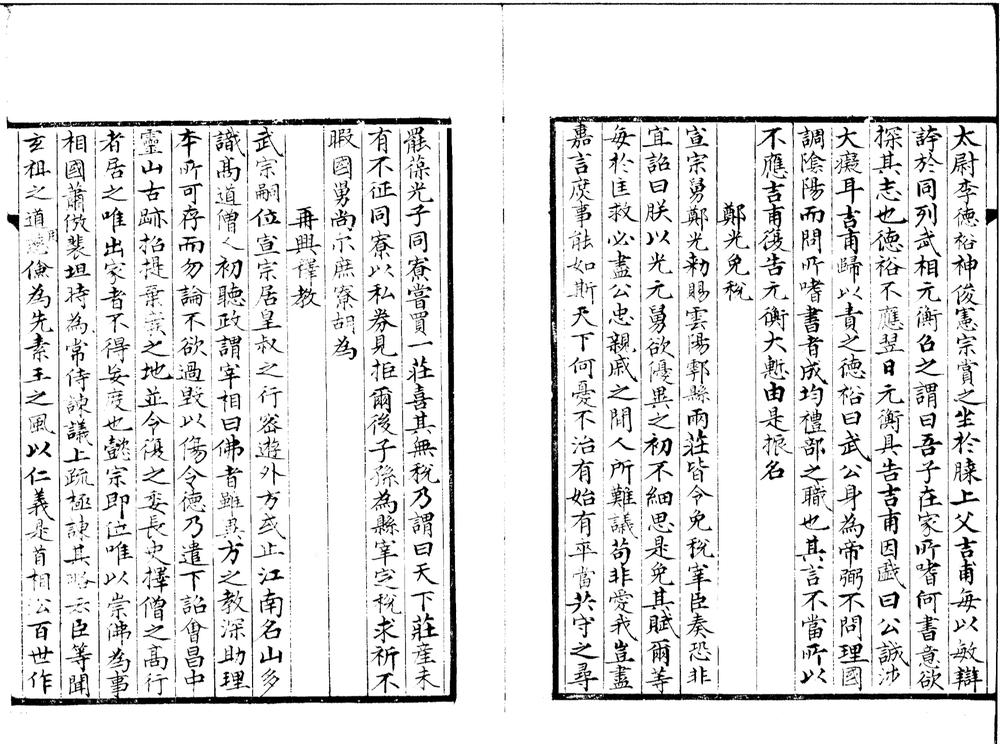 太尉李德裕神俊憲宗賞之坐於膝上父吉甫每以敏辯
誇於同列武相元衡召之謂曰吾子在家所嗜何書意欲
探其志也德裕不應翌日元衡具告吉甫因戲曰公誠涉
大癡耳吉甫歸以責之德裕曰武公身為帝弼不問理國
調陰陽而問所嗜書者成均禮部之職也其言不當所以
不應吉甫復告元衡大慙由是振名
鄭光免稅
宣宗舅鄭光勑賜雲陽鄠縣兩莊皆令免稅宰臣奏恐非
宜詔曰朕以光元舅欲優異之初不細思是免其賦爾等
每於匡救必盡公忠親戚之間人所難議苟非愛我豈盡
嘉言庶事能如斯天下何憂不治有始有卒當共守之尋
罷葆光子同寮嘗買一莊喜其無稅乃謂曰天下莊產未
有不征同寮以私券見拒爾後子孫為縣宰定稅求祈不
暇國舅尚尔庶寮胡為
再興釋教
武宗嗣位宣宗居皇叔之行密遊外方或止江南名山多
識高道僧人初聽政謂宰相曰佛者雖異方之教深助理
本所可存而勿論不欲過毀以傷令德乃遣下詔會昌中
靈山古跡招提棄廢之地並令復之委長史擇僧之高行
者居之唯出家者不得妄度也懿宗即位唯以崇佛為事
相國蕭倣裴坦時為常侍諫議上疏極諫其略云臣等聞
玄祖之道用慈儉為先素王之風以仁義是首相公百世作